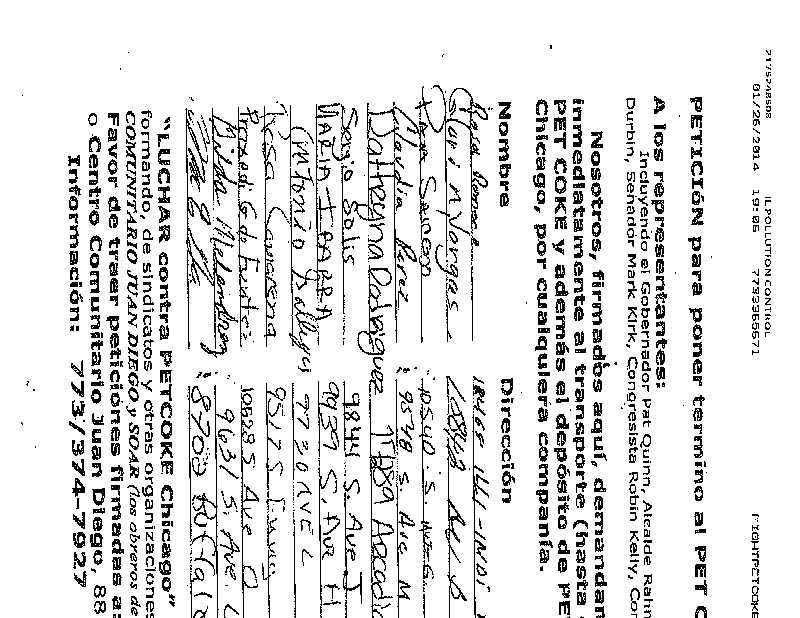 2175248508
01/26/2014 19:05 7733955671
IL POLLUTION CONTROL
FIGHTPETCOKE
PETICIÓN para poner termino al PET C
A los representantes:
Incluyendo el Gobernador Pat Quinn, Alcalde Rahm
Durbin, Senador Mark Kirk, Congresista Robin Kelly, Con
Nosotros, firmados aquí, demandan
inmediatamente al transporte (hasta
PET COKE y además el depósito de PE
Chicago, por cualquiera compañía.
Nombre Dirección
Rosa Romero
Vargas
10540 S. Ave G
Claudia Perez 9548 S Ave M
Rodriguez 11089 Arcadia
Sergio Solis 9844 S. Ave J
MARIA IBARRA 9939 S. Ave H
Antonio Gallegos 7730 AVE L
Rosa Camarena 9517 S Ewing
G de Fuentes 10528 S Ave O
Hilda Melendrez 9631 S. Ave. L
8700 Buffalo
"LUCHAR contra PETCOKE Chicago"
formando, de sindicatos y otras organizaciones
COMUNITARIO JUAN DIEGO y SOAR (los obreros de
Favor de traer peticiones firmadas a:
o Centro Comunitario Juan Diego, 88
Información: 773/374-7927